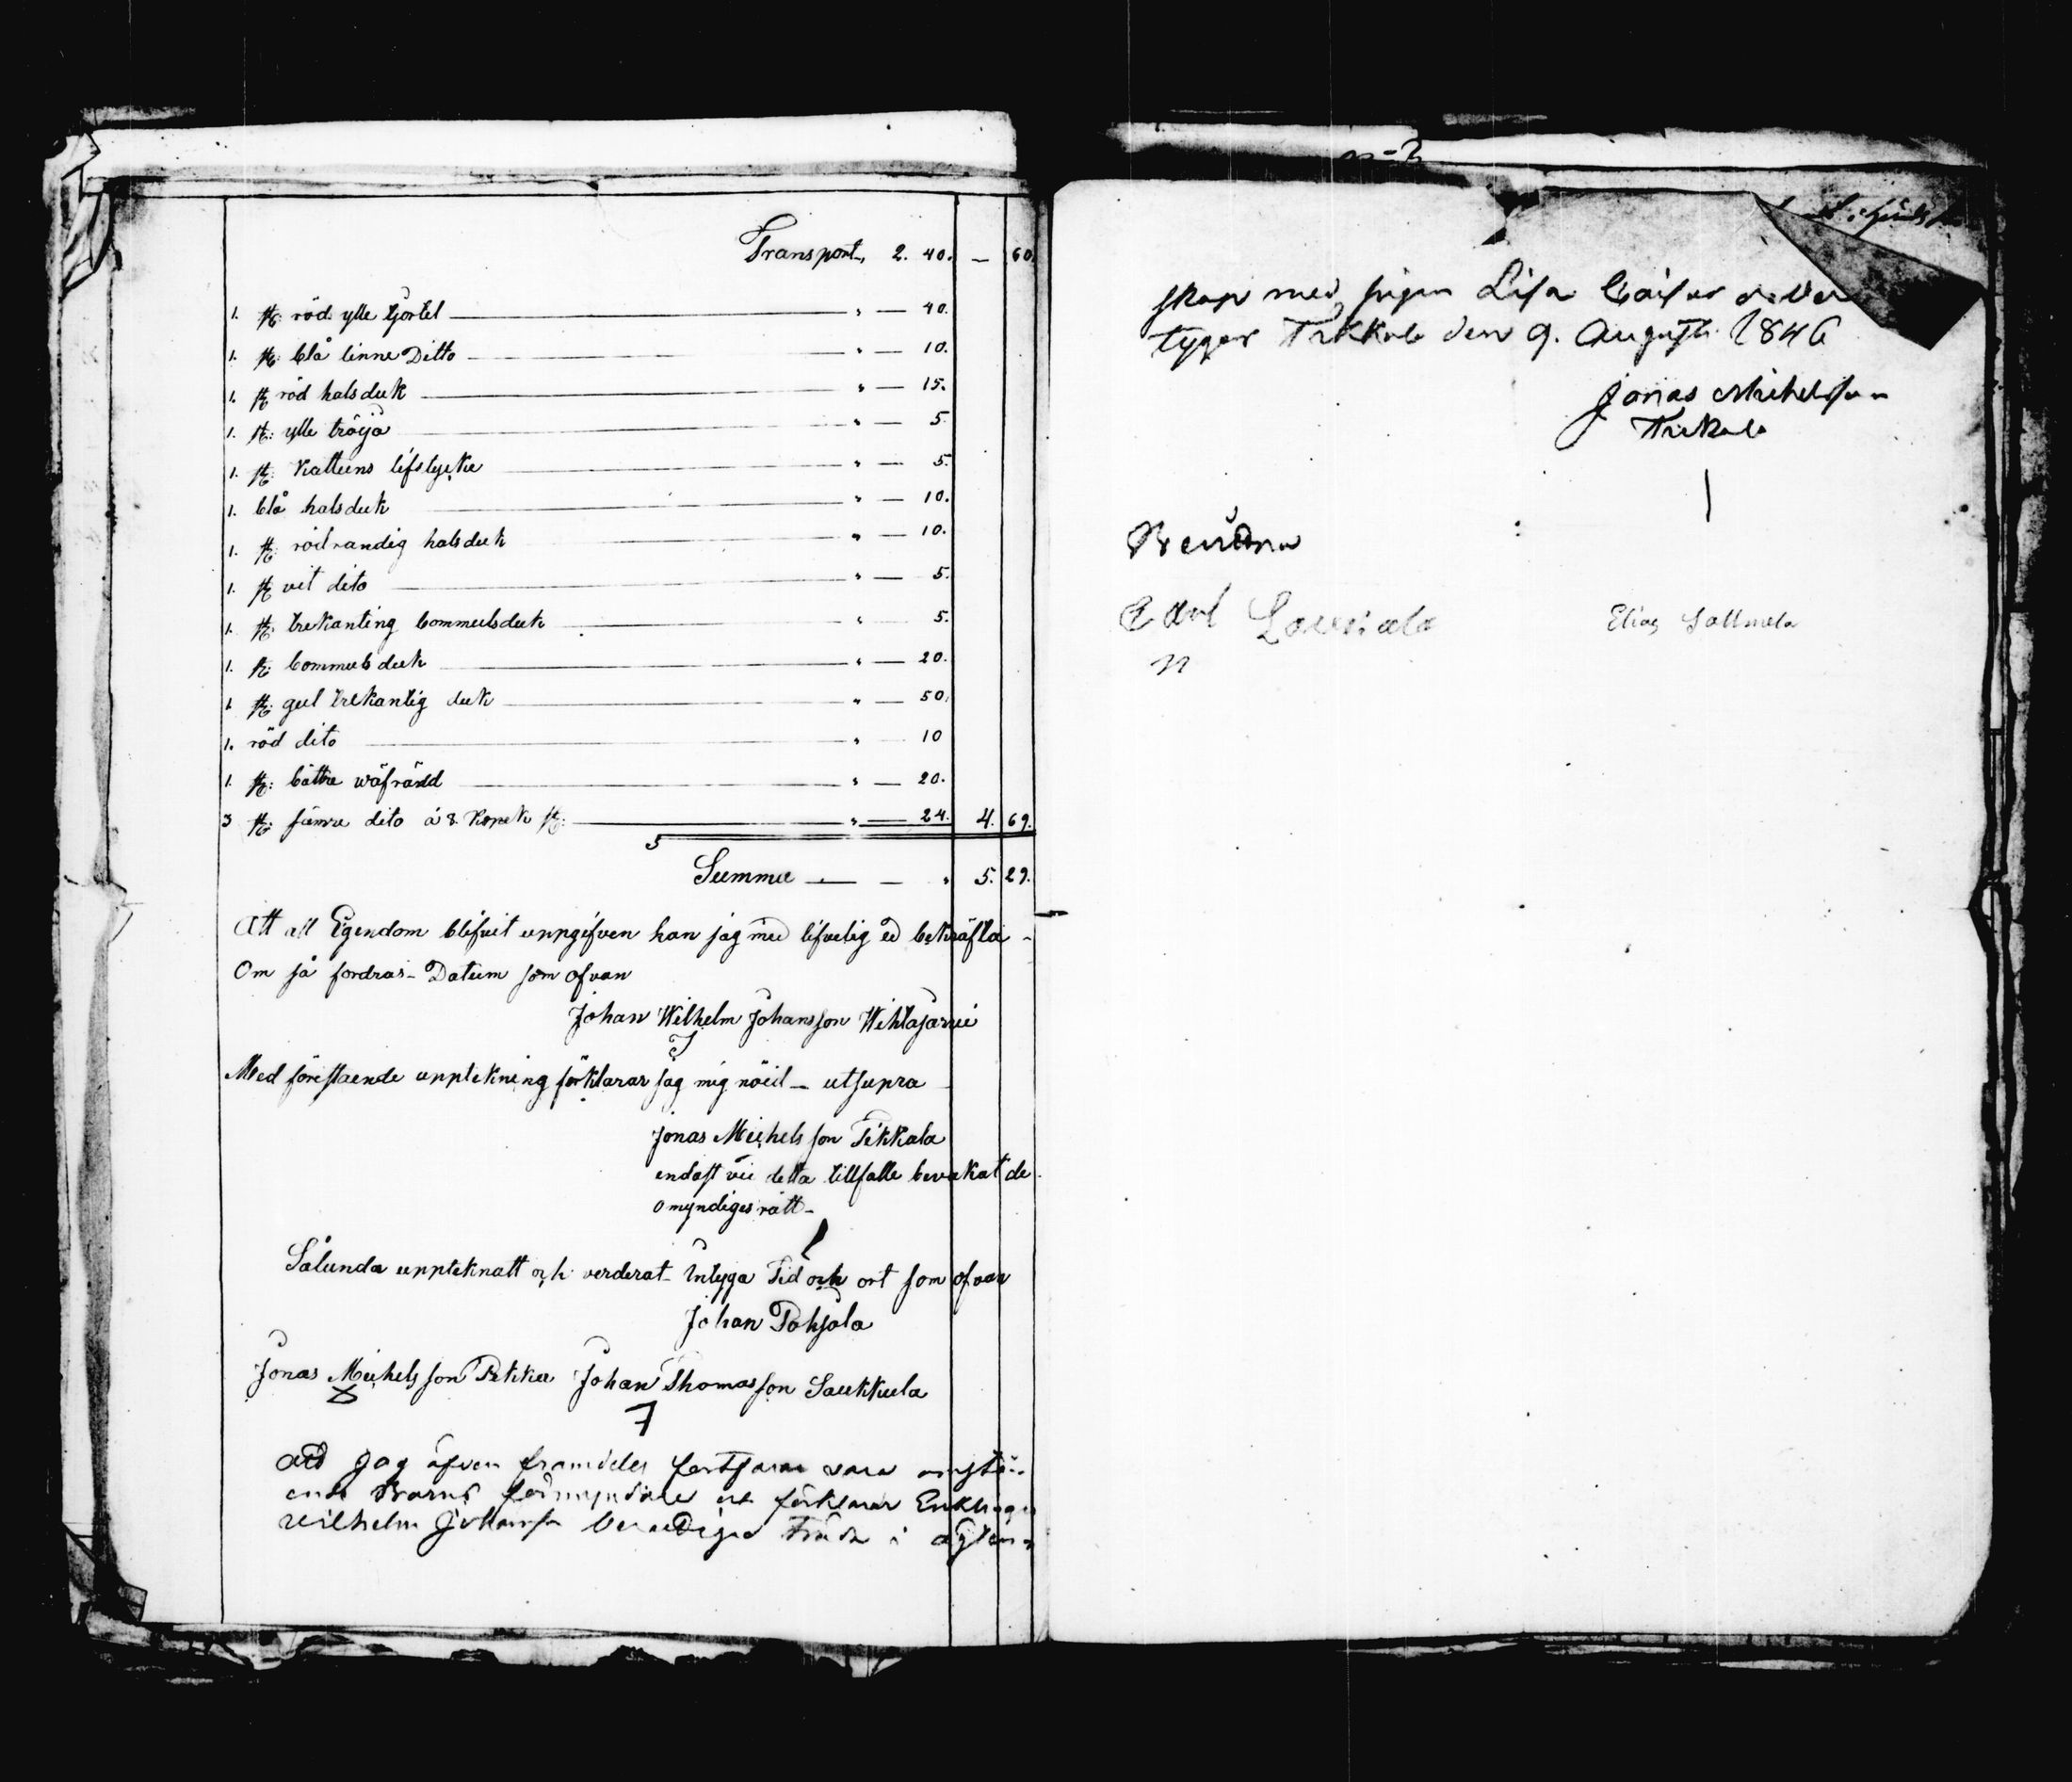 Transport, 2. 40. — 60.
1. st: röd ylle kjortel " — 40.
1. st: blå linne Ditto " — 10.
1. st röd halsduk " — 15.
1. st: ylle tröya " — 5.
1. st. Kattuns lifstycke " — 5.
1. blå halsduk " — 10.
1. st. rödrandig halsduk " — 10.
1. st vit dito " — 5.
1. st. trekanting bommulsduk " 5.
1. st: bommulsduk " — 20.
1. st. gul trekantig duk " — 50.
1. röd dito " — 10
1. st: bättre wäfränd " — 20.
3 st. sämre dito á 8. Kopek st: " — 24. 4. 69.
Summa — — " 5. 29.
Att all Egendom blifvit uppgifven kan jag med lifvelig ed bekräfta -
Om så fordras - Datum som ofvan
Johan Wilhelm Johansson Wihtajärvi
Med förestaende upptekning förklarar jag mig nöid - utsupra
Jonas Michelsson Tikkala
endast vii detta tillfälle bevakat de
omyndiges rätt -
Sålunda uppteknatt och verderat - Intyga Tid och ort som ofvan
Johan Pohjola
Jonas Michelsson Pekku Johan Thomasson Saukkula
7
att Jag äfven framdeles
Barns förmyndare förklarar Enklingen
Wilhelm i ägten-
skap med pigan Lisa
tygar den 9. Augusti 1846
Jonas Michelsson
Elias